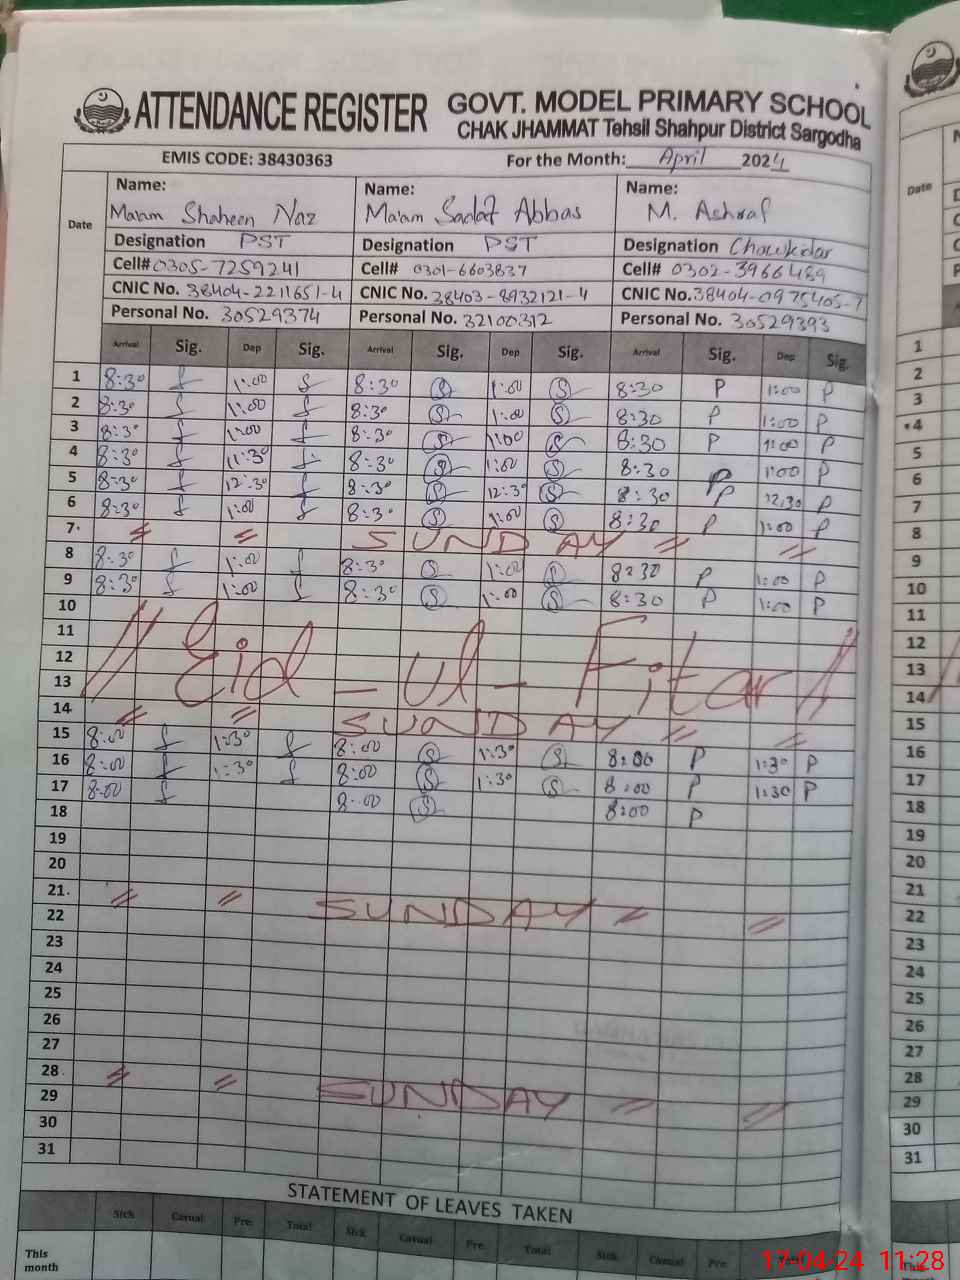 ATTENDANCE REGISTER GOVT. MODEL PRIMARY SCHOOL
CHAK JHAMMAT Tehsil Shahpur District Sargodha
EMIS CODE: 38430363 For the Month: April 2024
Date Name: Name: Name:
Ma'am Shaheen Naz Ma'am Sadaf Abbas M. Ashraf
Designation PST Designation PST Designation Chowkidar
Cell# 0305-7259241 Cell# 0301-6603837 Cell# 0302-3966489
CNIC No. 38404-2211651-4 CNIC No. 38403-8932121-4 CNIC No. 38404-0975405-7
Personal No. 30529374 Personal No. 32100312 Personal No. 30529393
Arrival Sig. Dep Sig. Arrival Sig. Dep Sig. Arrival Sig. Dep Sig.
1 8:30 1:00 8:30 1:00 8:30 P 1:00 P
2 8:30 1:00 8:30 1:00 8:30 P 1:00 P
3 8:30 1:00 8:30 1:00 8:30 P 1:00 P
4 8:30 11:30 8:30 1:00 8:30 P 1:00 P
5 8:30 12:30 8:30 12:30 8:30 P 12:30 P
6 8:30 1:00 8:30 1:00 8:30 P 1:00 P
7 SUNDAY
8 8:30 1:00 8:30 1:00 8:30 P 1:00 P
9 8:30 1:00 8:30 1:00 8:30 P 1:00 P
10
11
12 Eid-ul-Fitar
13
14 SUNDAY
15 8:00 1:30 8:00 1:30 8:00 P 1:30 P
16 8:00 1:30 8:00 1:30 8:00 P 1:30 P
17 8:00 8:00 8:00 P
18
19
20
21 SUNDAY
22
23
24
25
26
27
28 SUNDAY
29
30
31
STATEMENT OF LEAVES TAKEN
Sick Casual Pre. Total Sick Casual Pre. Total Sick Casual Pre. Total
This
month
17-04-24 11:28
Date
1
2
3
4
5
6
7
8
9
10
11
12
13
14
15
16
17
18
19
20
21
22
23
24
25
26
27
28
29
30
31